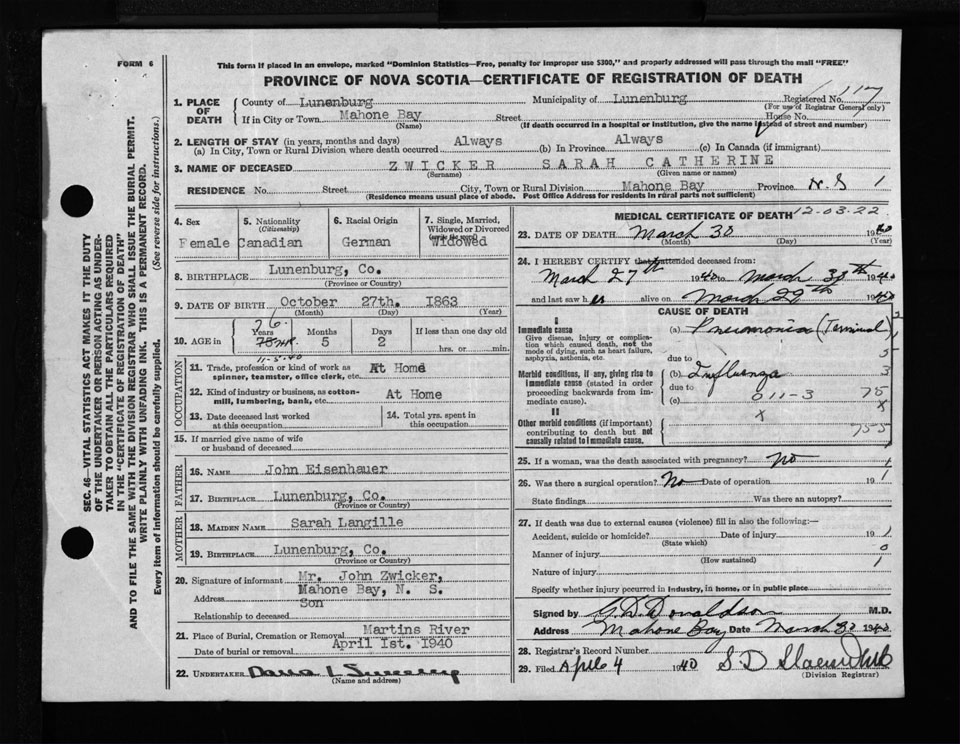 FORM 6
This form if placed in an envelope, marked "Dominion Statistics—Free, penalty for improper use $300," and properly addressed will pass through the mail "FREE"
PROVINCE OF NOVA SCOTIA—CERTIFICATE OF REGISTRATION OF DEATH
1. PLACE OF DEATH
County of Lunenburg Municipality of Lunenburg Registered No. 117
(For use of Registrar General only)
If in City or Town Mahone Bay Street House No.
(Name) (If death occurred in a hospital or institution, give the name instead of street and number)
2. LENGTH OF STAY (in years, months and days)
(a) In City, Town or Rural Division where death occurred Always (b) In Province Always (c) In Canada (if immigrant)
3. NAME OF DECEASED ZWICKER SARAH CATHERINE
(Surname) (Given name or names)
RESIDENCE No. Street City, Town or Rural Division Mahone Bay Province N.S 1
(Residence means usual place of abode. Post Office Address for residents in rural parts not sufficient)
4. Sex
Female
5. Nationality
(Citizenship)
Canadian
6. Racial Origin
German
7. Single, Married,
Widowed or Divorced
Widowed
8. BIRTHPLACE Lunenburg, Co.
(Province or Country)
9. DATE OF BIRTH October 27th. 1863
(Month) (Day) (Year)
10. AGE in
Years Months Days If less than one day old
76 5 2 hrs. or min.
11-5-40
OCCUPATION
11. Trade, profession or kind of work as
spinner, teamster, office clerk, etc. At Home
12. Kind of industry or business, as cotton-
mill, lumbering, bank, etc. At Home
13. Date deceased last worked
at this occupation
14. Total yrs. spent in
this occupation
15. If married give name of wife
or husband of deceased
FATHER
16. NAME John Eisenhauer
17. BIRTHPLACE Lunenburg, Co.
(Province or Country)
MOTHER
18. MAIDEN NAME Sarah Langille
19. BIRTHPLACE Lunenburg, Co.
(Province or Country)
20. Signature of informant Mr. John Zwicker,
Address Mahone Bay, N. S.
Relationship to deceased Son
21. Place of Burial, Cremation or Removal Martins River
Date of burial or removal April 1st. 1940
22. UNDERTAKER
(Name and address)
MEDICAL CERTIFICATE OF DEATH 12-03-22
23. DATE OF DEATH March 30 1940
(Month) (Day) (Year)
24. I HEREBY CERTIFY that I attended deceased from:
March 27th 1940 to March 30th 1940
and last saw her alive on March 29th 1940
CAUSE OF DEATH
I
Immediate cause
Give disease, injury or complica-
tion which caused death, not the
mode of dying, such as heart failure,
asphyxia, asthenia, etc.
(a) Pneumonia (Terminal)
due to 5
Morbid conditions, if any, giving rise to
immediate cause (stated in order
proceeding backwards from im-
mediate cause).
(b) Influenza 3
due to
(c) 011-3 75
II x x
Other morbid conditions (if important)
contributing to death but not
causally related to immediate cause.
755
25. If a woman, was the death associated with pregnancy? No 1
26. Was there a surgical operation? No Date of operation 19 1
State findings Was there an autopsy?
27. If death was due to external causes (violence) fill in also the following:—
Accident, suicide or homicide? Date of injury 19 1
(State which)
Manner of injury 0
(How sustained)
Nature of injury 1
Specify whether injury occurred in industry, in home, or in public place
Signed by G.D. Donaldson M.D.
Address Mahone Bay Date March 30 1940
28. Registrar's Record Number
29. Filed April 4 1940
(Division Registrar)
SEC. 46—VITAL STATISTICS ACT MAKES IT THE DUTY
OF THE UNDERTAKER OR PERSON ACTING AS UNDER-
TAKER TO OBTAIN ALL THE PARTICULARS REQUIRED
IN THE "CERTIFICATE OF REGISTRATION OF DEATH"
AND TO FILE THE SAME WITH THE DIVISION REGISTRAR WHO SHALL ISSUE THE BURIAL PERMIT.
WRITE PLAINLY WITH UNFADING INK. THIS IS A PERMANENT RECORD.
Every item of information should be carefully supplied. (See reverse side for instructions.)